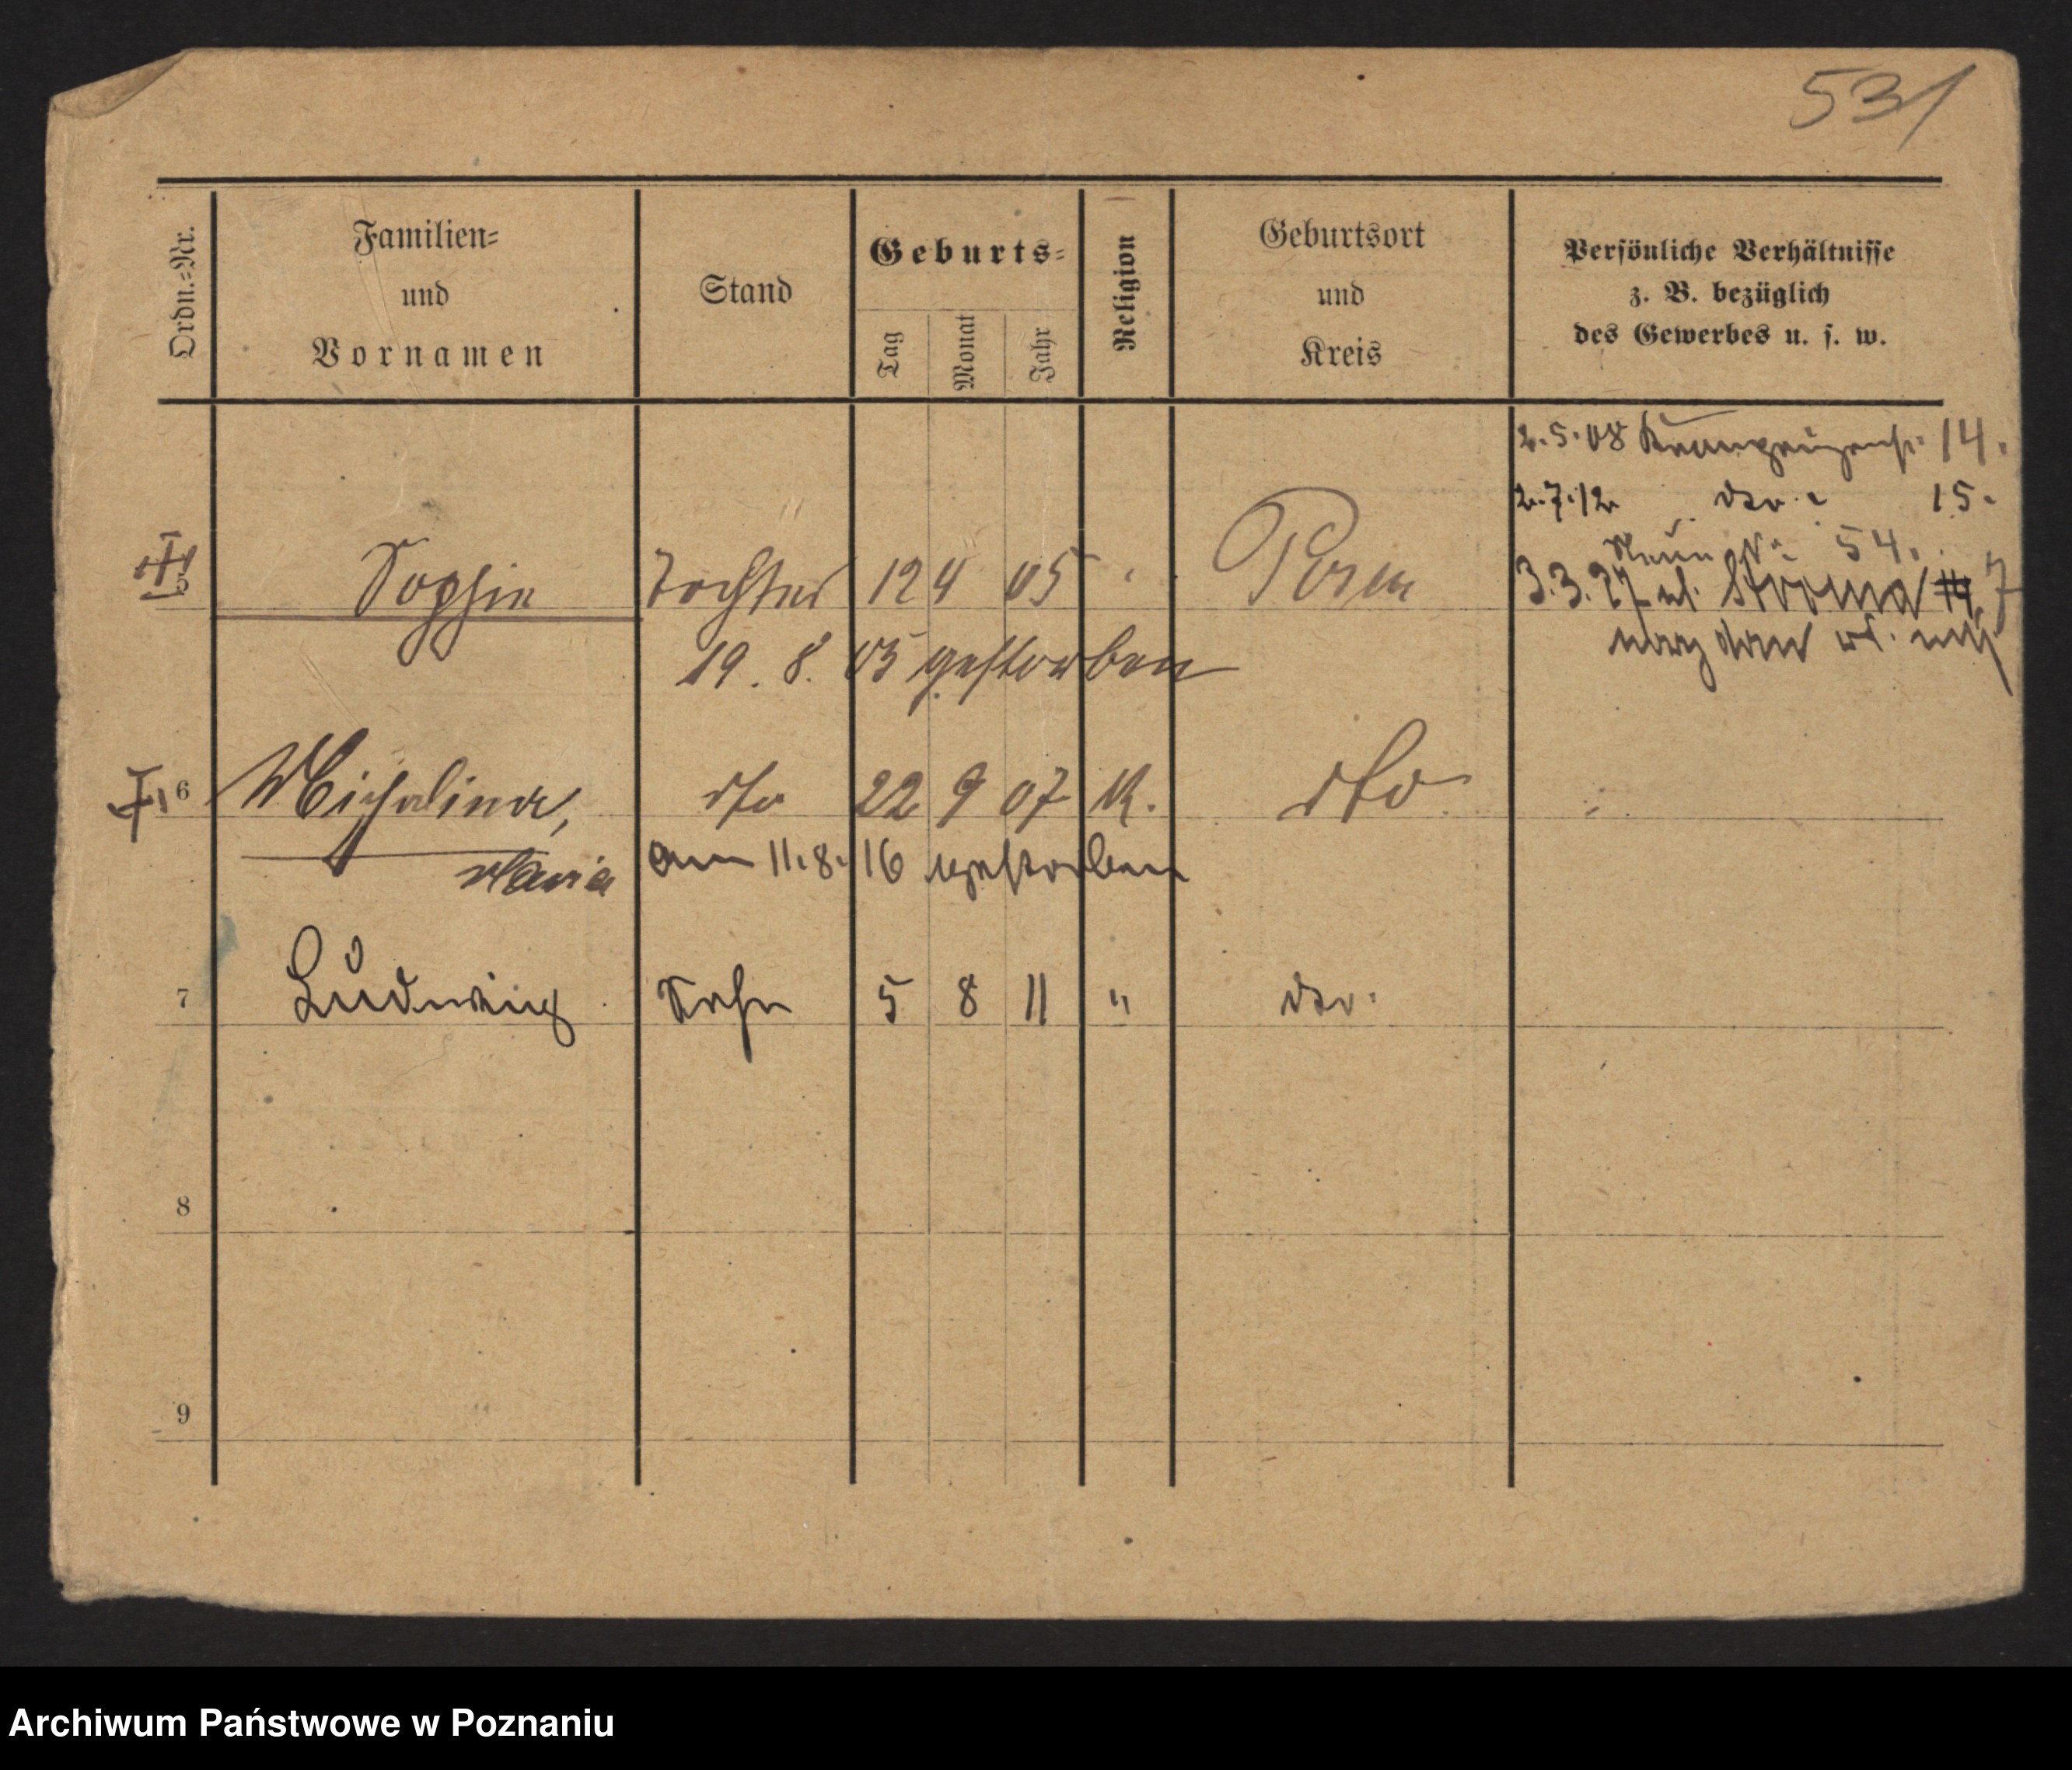 531
Ordn.=Nr.
Familien=
und
Vornamen
Stand
Geburts=
Tag
Monat
Jahr
Religion
Geburtsort
und
Kreis
Persönliche Verhältnisse
z. B. bezüglich
des Gewerbes u. s. w.
2.5.08 Kronprinzenst. 14.
2.7.12 dto. 15.
Neue No 54.
5 Sophie Tochter 12 4 05 " Posen
3.3.27 ul. Stroma 14, 7
19. 8. 05 gestorben
6 Michalina, dto 22 9 07 K. dto
Maria am 11.8.16 gestorben
7 Ludwig Sohn 5 8 11 " dto.
8
9
Archiwum Państwowe w Poznaniu